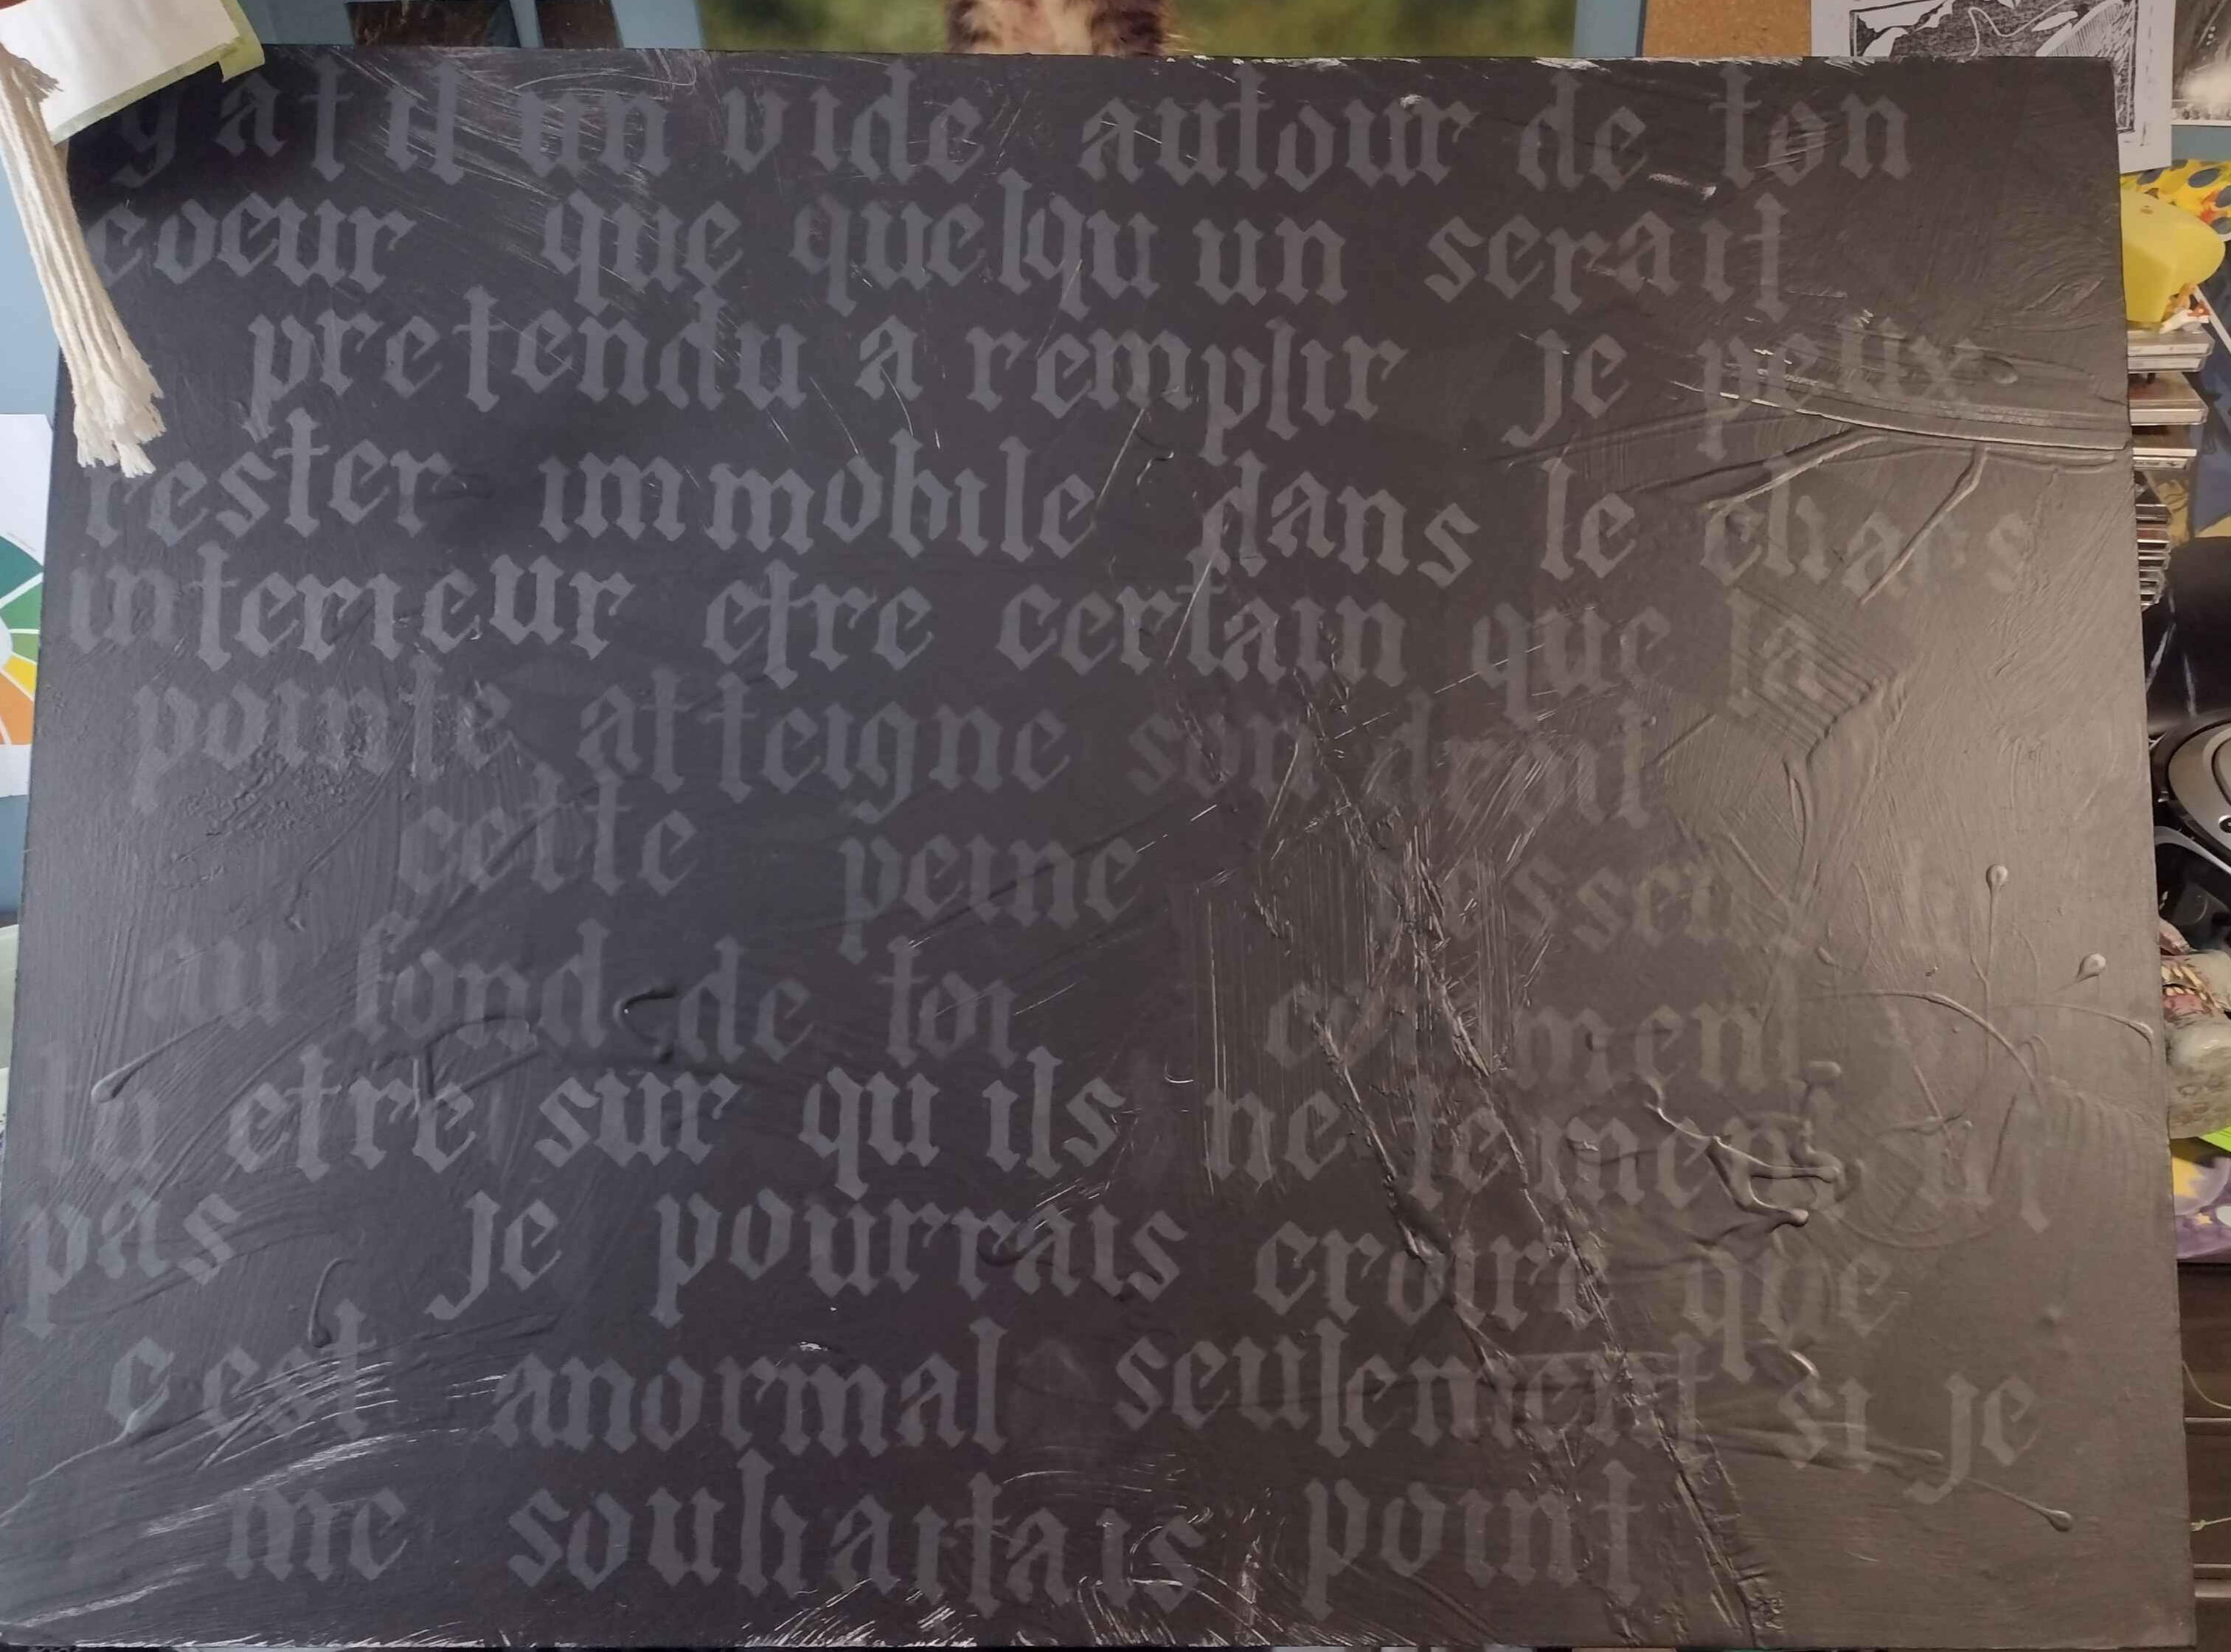 y a t il un vide autour de ton
coeur que quelqu un serait
pretendu a remplir je peux
rester immobile dans le chaos
interieur etre certain que la
pointe atteigne son droit
cette peine
au fond de toi comment
tu etre sur qu ils ne te ment
pas je pourrais croire que
c est anormal seulement si je
me souhaitais point